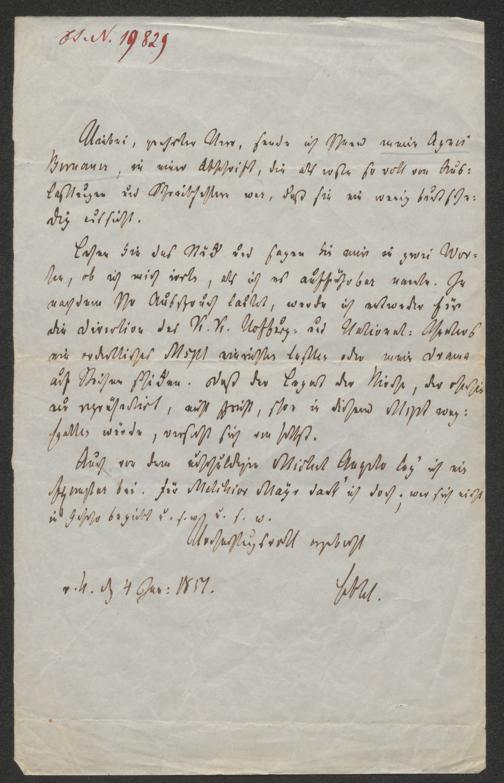 H.I.N. 19829
Anbei, geehrter Herr, sende ich Ihnen meine Agnes
Bernauer, in einer Abschrift, die als erste so voll von Aus-
lassungen und Schreibfehlern war, daß sie ein wenig buntsche-
ckig aussieht.
Lesen Sie das Stück und sagen Sie mir in zwei Wor-
ten, ob ich mich irrte, als ich es aufführbar nannte. Je
nachdem Ihr Ausspruch lautet, werde ich entweder für
die Direction des K. K. Hofburg- und National-Theaters
ein ordentliches Mspt einrichten lassen oder mein Drama
auf Reisen schicken. Daß der Legat der Kirche, der
repräsentirt, auch hier in diesem Mspt weg-
fallen würde, versteht sich von selbst.
Auch von dem Michel Angelo leg' ich ein
Exemplar bei. Für Melchior Meyr dank' ich doch; wer sich nicht
in begiebt u. s. w. u. s. w.
Hochachtungsvoll ergebenst
v. H. d. 4 Jan: 1851.
Hebbel.